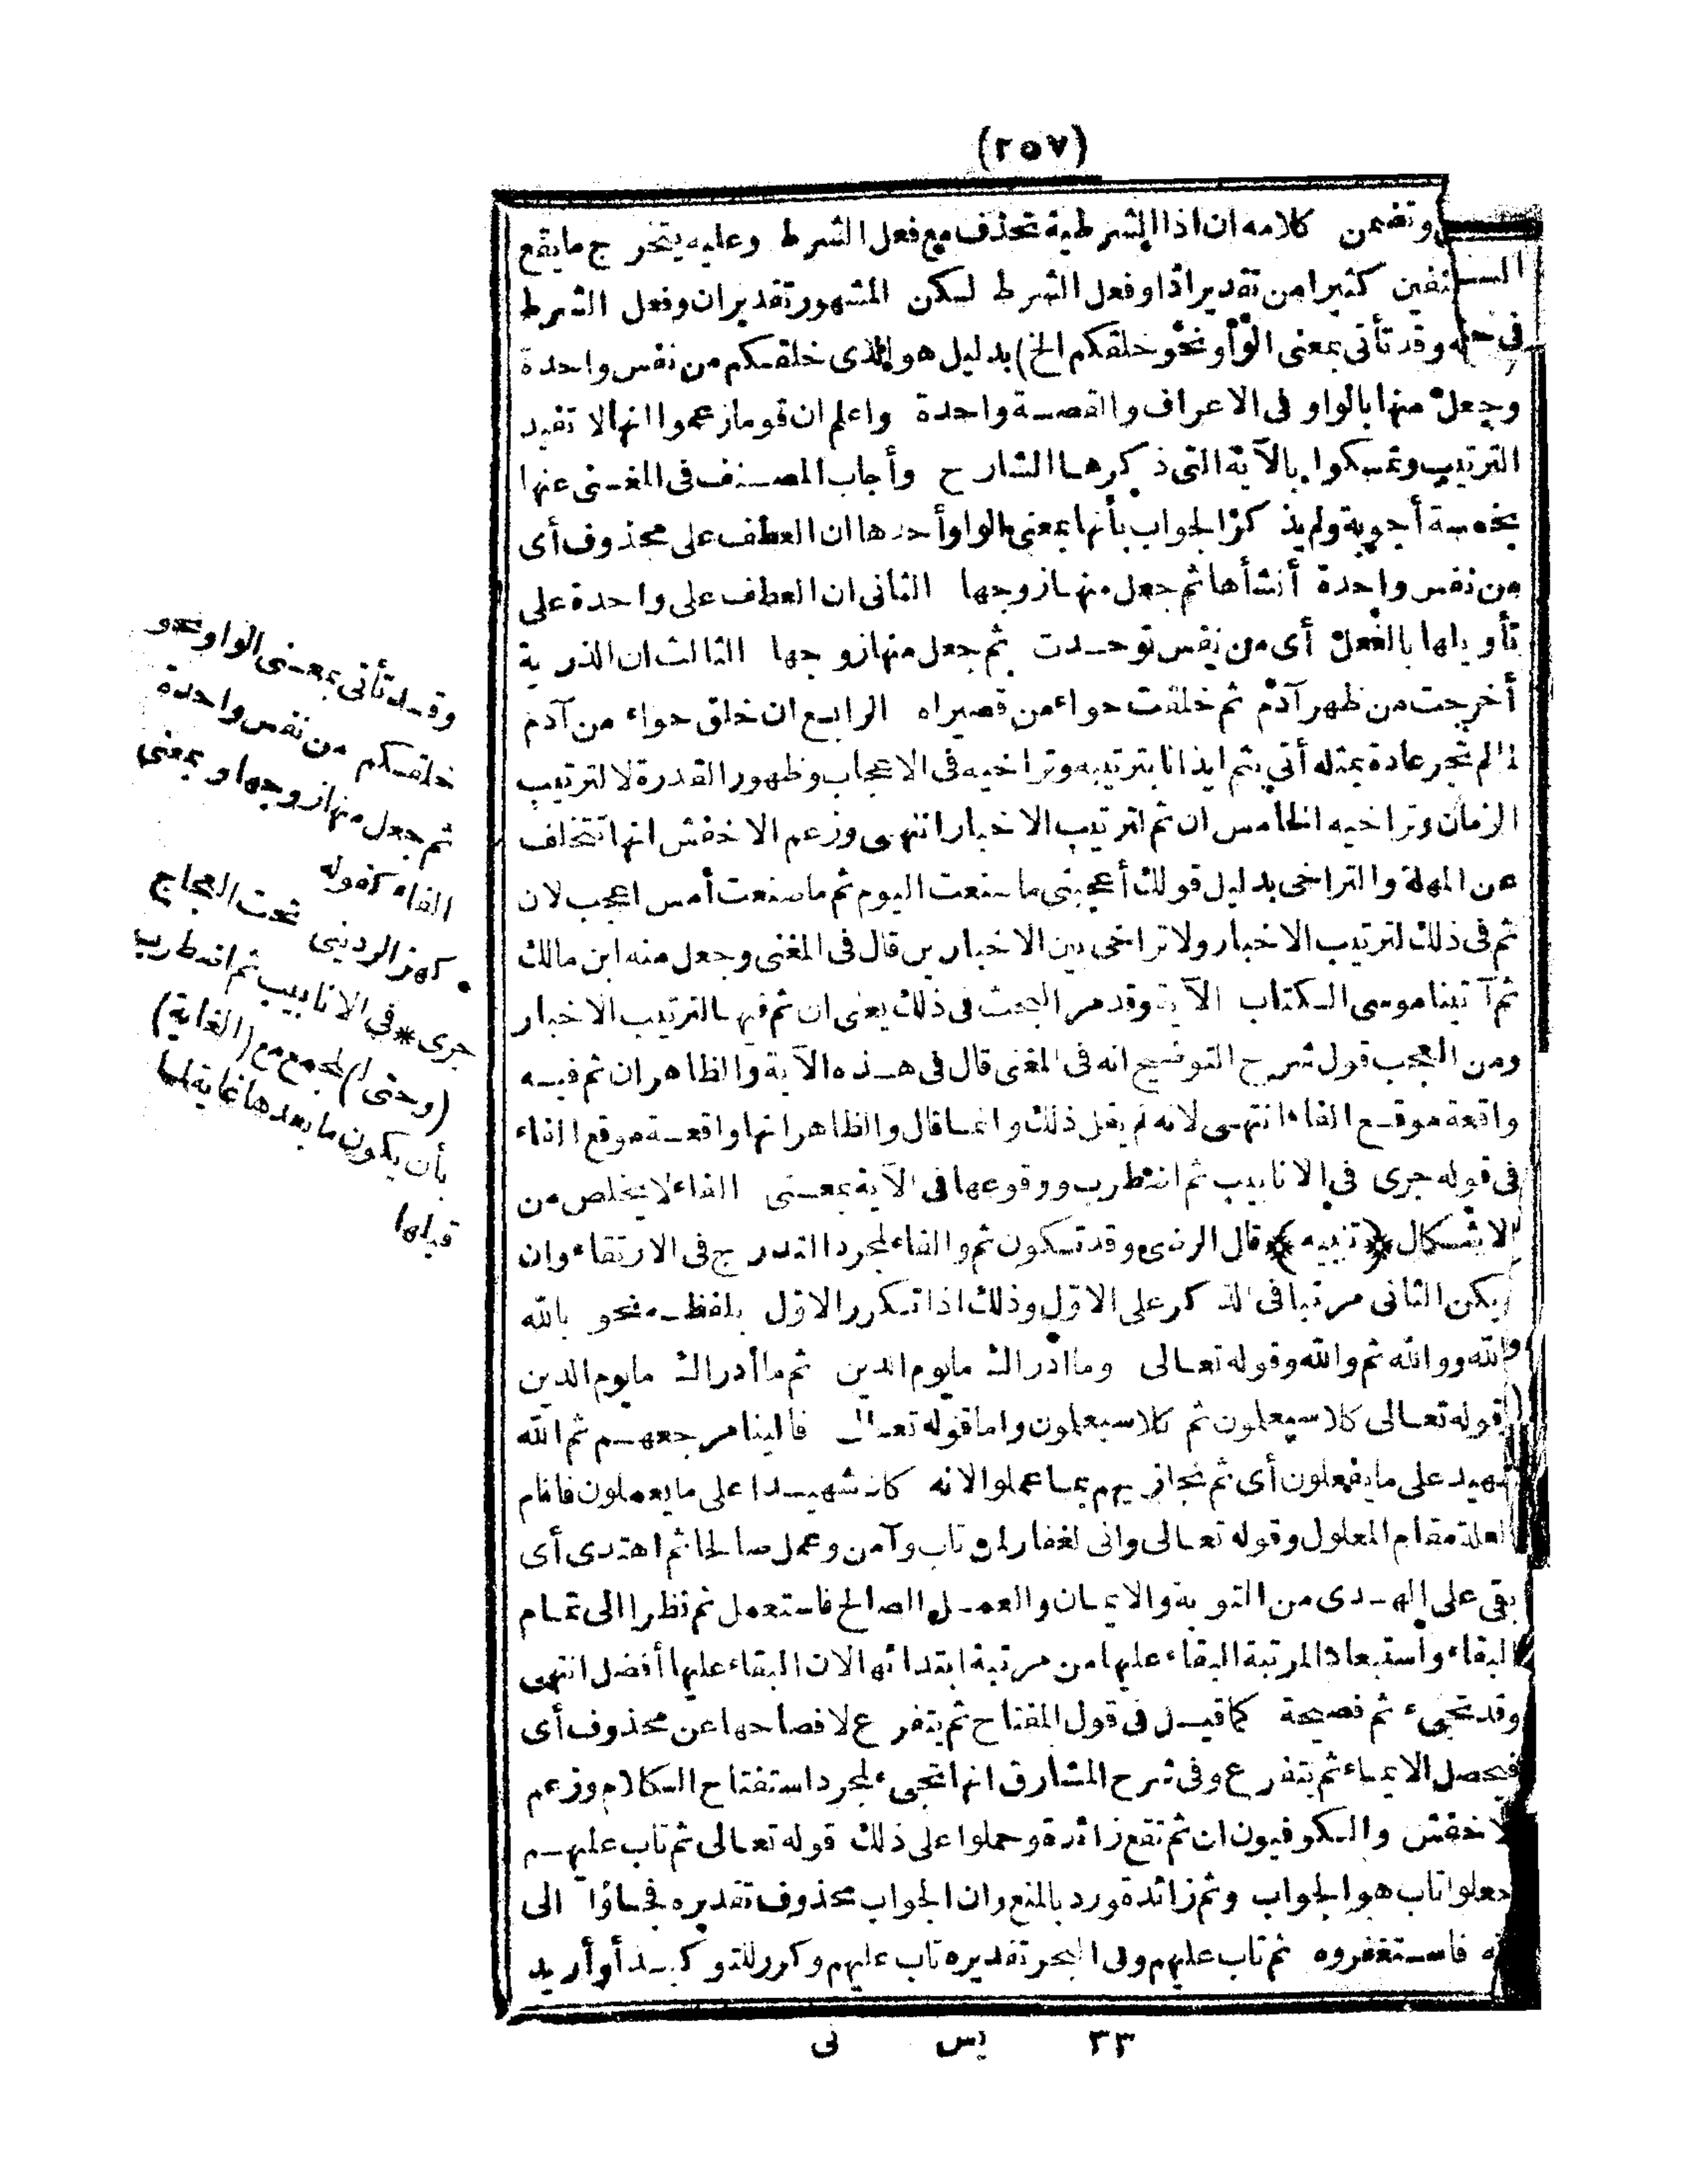 (٢٥٧)
وتضمن كلامه ان اذا الشرطية تحذف مع فعل الشرط وعليه يتخرج ما يقع
كثيرا من تقدير اذا وفعل الشرط لكن المشهور تقدير ان وفعل الشرط
وقد تأتى بمعنى الواو نحو خلقكم الخ) بدليل هو الذى خلقكم من نفس واحدة
وجعل منها بالواو فى الاعراف والقصة واحدة واعلم ان قوما زعموا انها لا تفيد
الترتيب وتمسكوا بالآية التى ذكرها الشارح وأجاب المصنف فى المغنى عنها
بخمسة أجوبة ولم يذكر الجواب بأنها بمعنى الواو أحدها ان العطف على محذوف أى
من نفس واحدة أنشأها ثم جعل منها زوجها الثانى ان العطف على واحدة على
تأويلها بالفعل أى من نفس توحدت ثم جعل منها زوجها الثالث ان الذرية
أخرجت من ظهر آدم ثم خلقت حواء من قصيراه الرابع ان خلق حواء من آدم
لما لم تجر عادة بمثله أتى بثم ايذانا بترتيبه وتراخيه فى الاعجاب وظهور القدرة لا لترتيب
الزمان وتراخيه الخامس ان ثم لترتيب الاخبار انتهى وزعم الاخفش انها تتخلف
عن المهلة والتراخى بدليل قولك أعجبنى ما صنعت اليوم ثم ما صنعت أمس اعجب لان
ثم فى ذلك لترتيب الاخبار ولا تراخى بين الاخبارين قال فى المغنى وجعل منه ابن مالك
ثم آتينا موسى الكتاب الآية وقد مر البحث فى ذلك يعنى ان ثم فيها لترتيب الاخبار
ومن العجب قول شرح التوضيح انه فى المغنى قال فى هذه الآية والظاهر ان ثم فيه
واقعة موقع الفاء انتهى لانه لم يقل ذلك وانما قال والظاهر انها واقعة موقع الفاء
فى قوله جرى فى الانابيب ثم اضطرب ووقوعها فى الآية بمعنى الفاء لا يخلص من
الاشكال ﴿تنبيه﴾ قال الرضى وقد تكون ثم والفاء لمجرد التدرج فى الارتقاء وان
يكن الثانى مرتبا فى الذكر على الاول وذلك اذا تكرر الاول بلفظه نحو بالله
والله ووالله ثم والله وقوله تعالى وما ادراك ما يوم الدين ثم ما أدراك ما يوم الدين
قوله تعالى كلا سيعلمون ثم كلا سيعلمون واما قوله تعالى فالينا مرجعهم ثم الله
شهيد على ما يفعلون أى ثم نجازيهم بما عملوا لانه كان شهيدا على ما يعملون فاقام
العلة مقام المعلول وقوله تعالى وانى لغفار لمن تاب وآمن وعمل صالحا ثم اهتدى أى
بقى على الهدى من التوبة والايمان والعمل الصالح فاستعمل ثم نظرا الى تمام
البقاء واستبعادا لمرتبة البقاء عليها من مرتبة ابتدائها لان البقاء عليها أفضل انتهى
وقد تجىء ثم فصيحة كما قيل فى قول المفتاح ثم يتفرع لافصاحها عن محذوف أى
فيحصل الايماء ثم يتفرع وفى شرح المشارق انها تجىء لمجرد استفتاح الكلام وزعم
الاخفش والكوفيون ان ثم تقع زائدة وحملوا على ذلك قوله تعالى ثم تاب عليهم
جعلوا تاب هو الجواب وثم زائدة ورد بالمنع وان الجواب محذوف تقديره فجاؤا الى
فاستغفروه ثم تاب عليهم وفى البحر تقديره تاب عليهم وكرر للتوكيد أو أريد
وقد تأتى بمعنى الواو نحو
خلقكم من نفس واحدة
ثم جعل منها زوجها وبمعنى
الفاء كقوله
كهز الردينى تحت العجاج
جرى * فى الانابيب ثم اضطرب
(وحتى) للجمع مع (الغاية)
بأن يكون ما بعدها غاية لما
قبلها
٣٣ يس نى